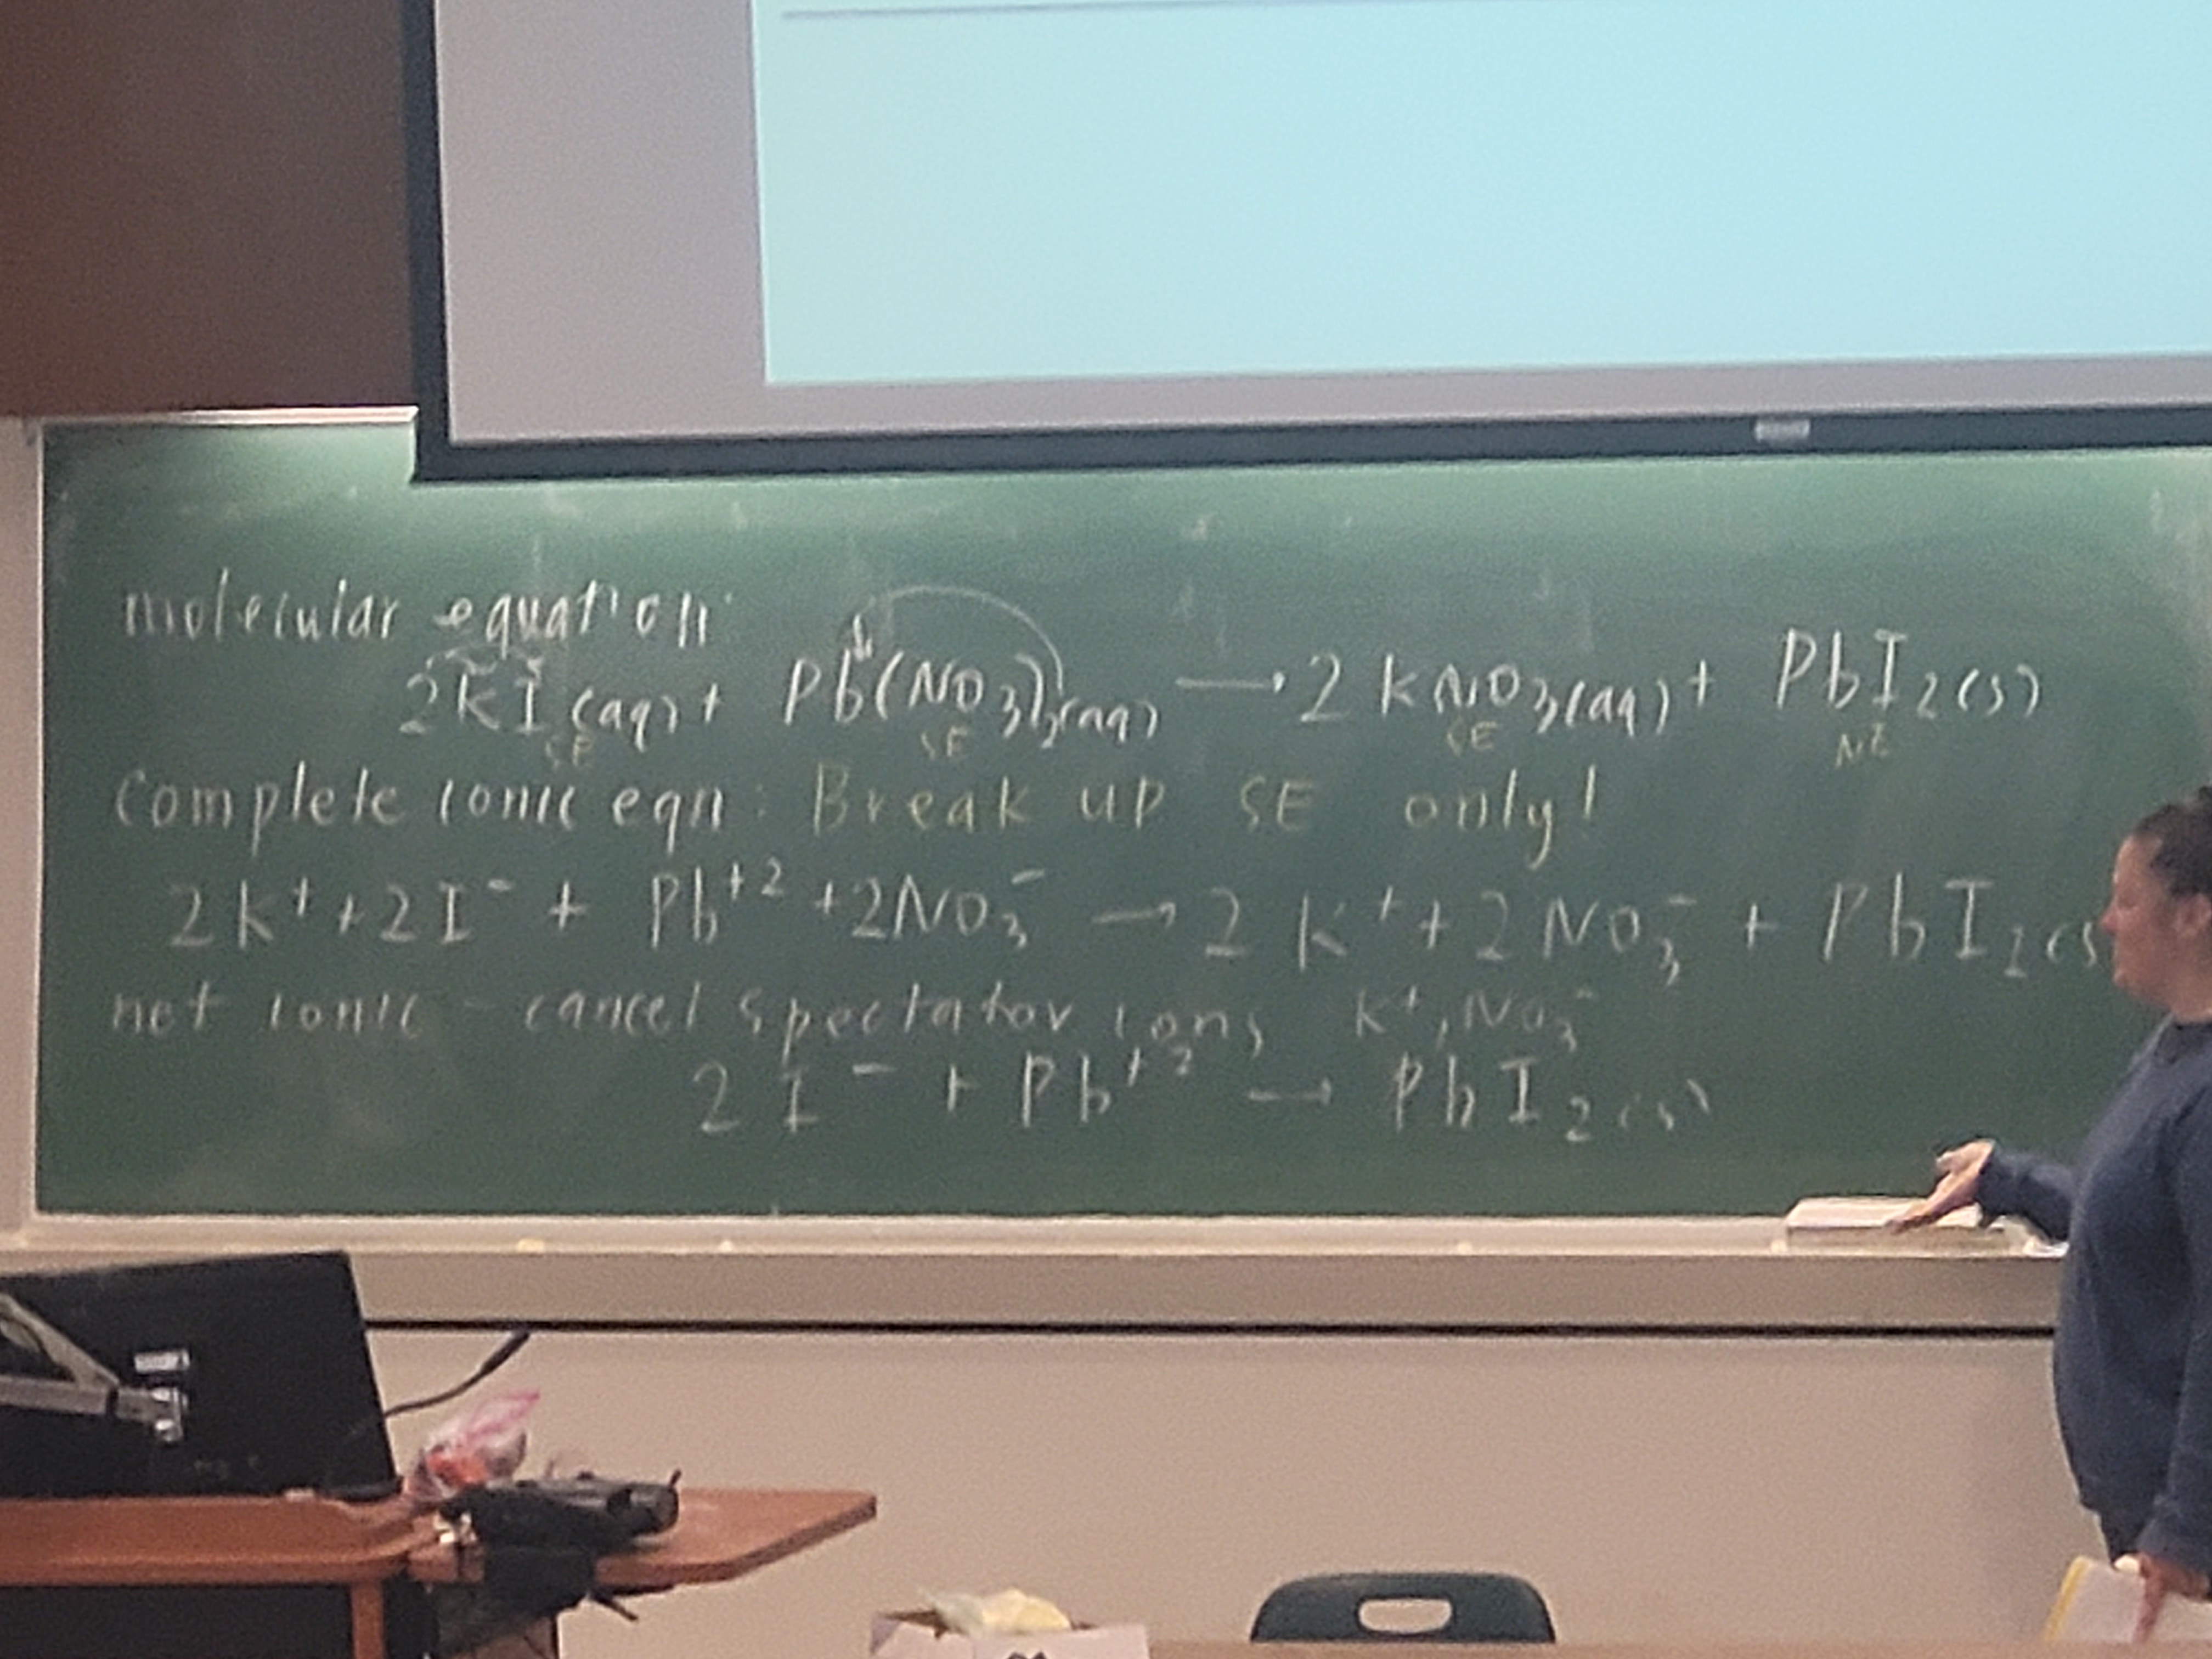 molecular equation:
2KI(aq) + Pb(NO3)2(aq) → 2KNO3(aq) + PbI2(s)
SE SE SE NE
complete ionic eqn: Break up SE only!
2K⁺ + 2I⁻ + Pb⁺² + 2NO3⁻ → 2K⁺ + 2NO3⁻ + PbI2(s
net ionic - cancel spectator ions K⁺, NO3⁻
2I⁻ + Pb⁺² → PbI2(s)